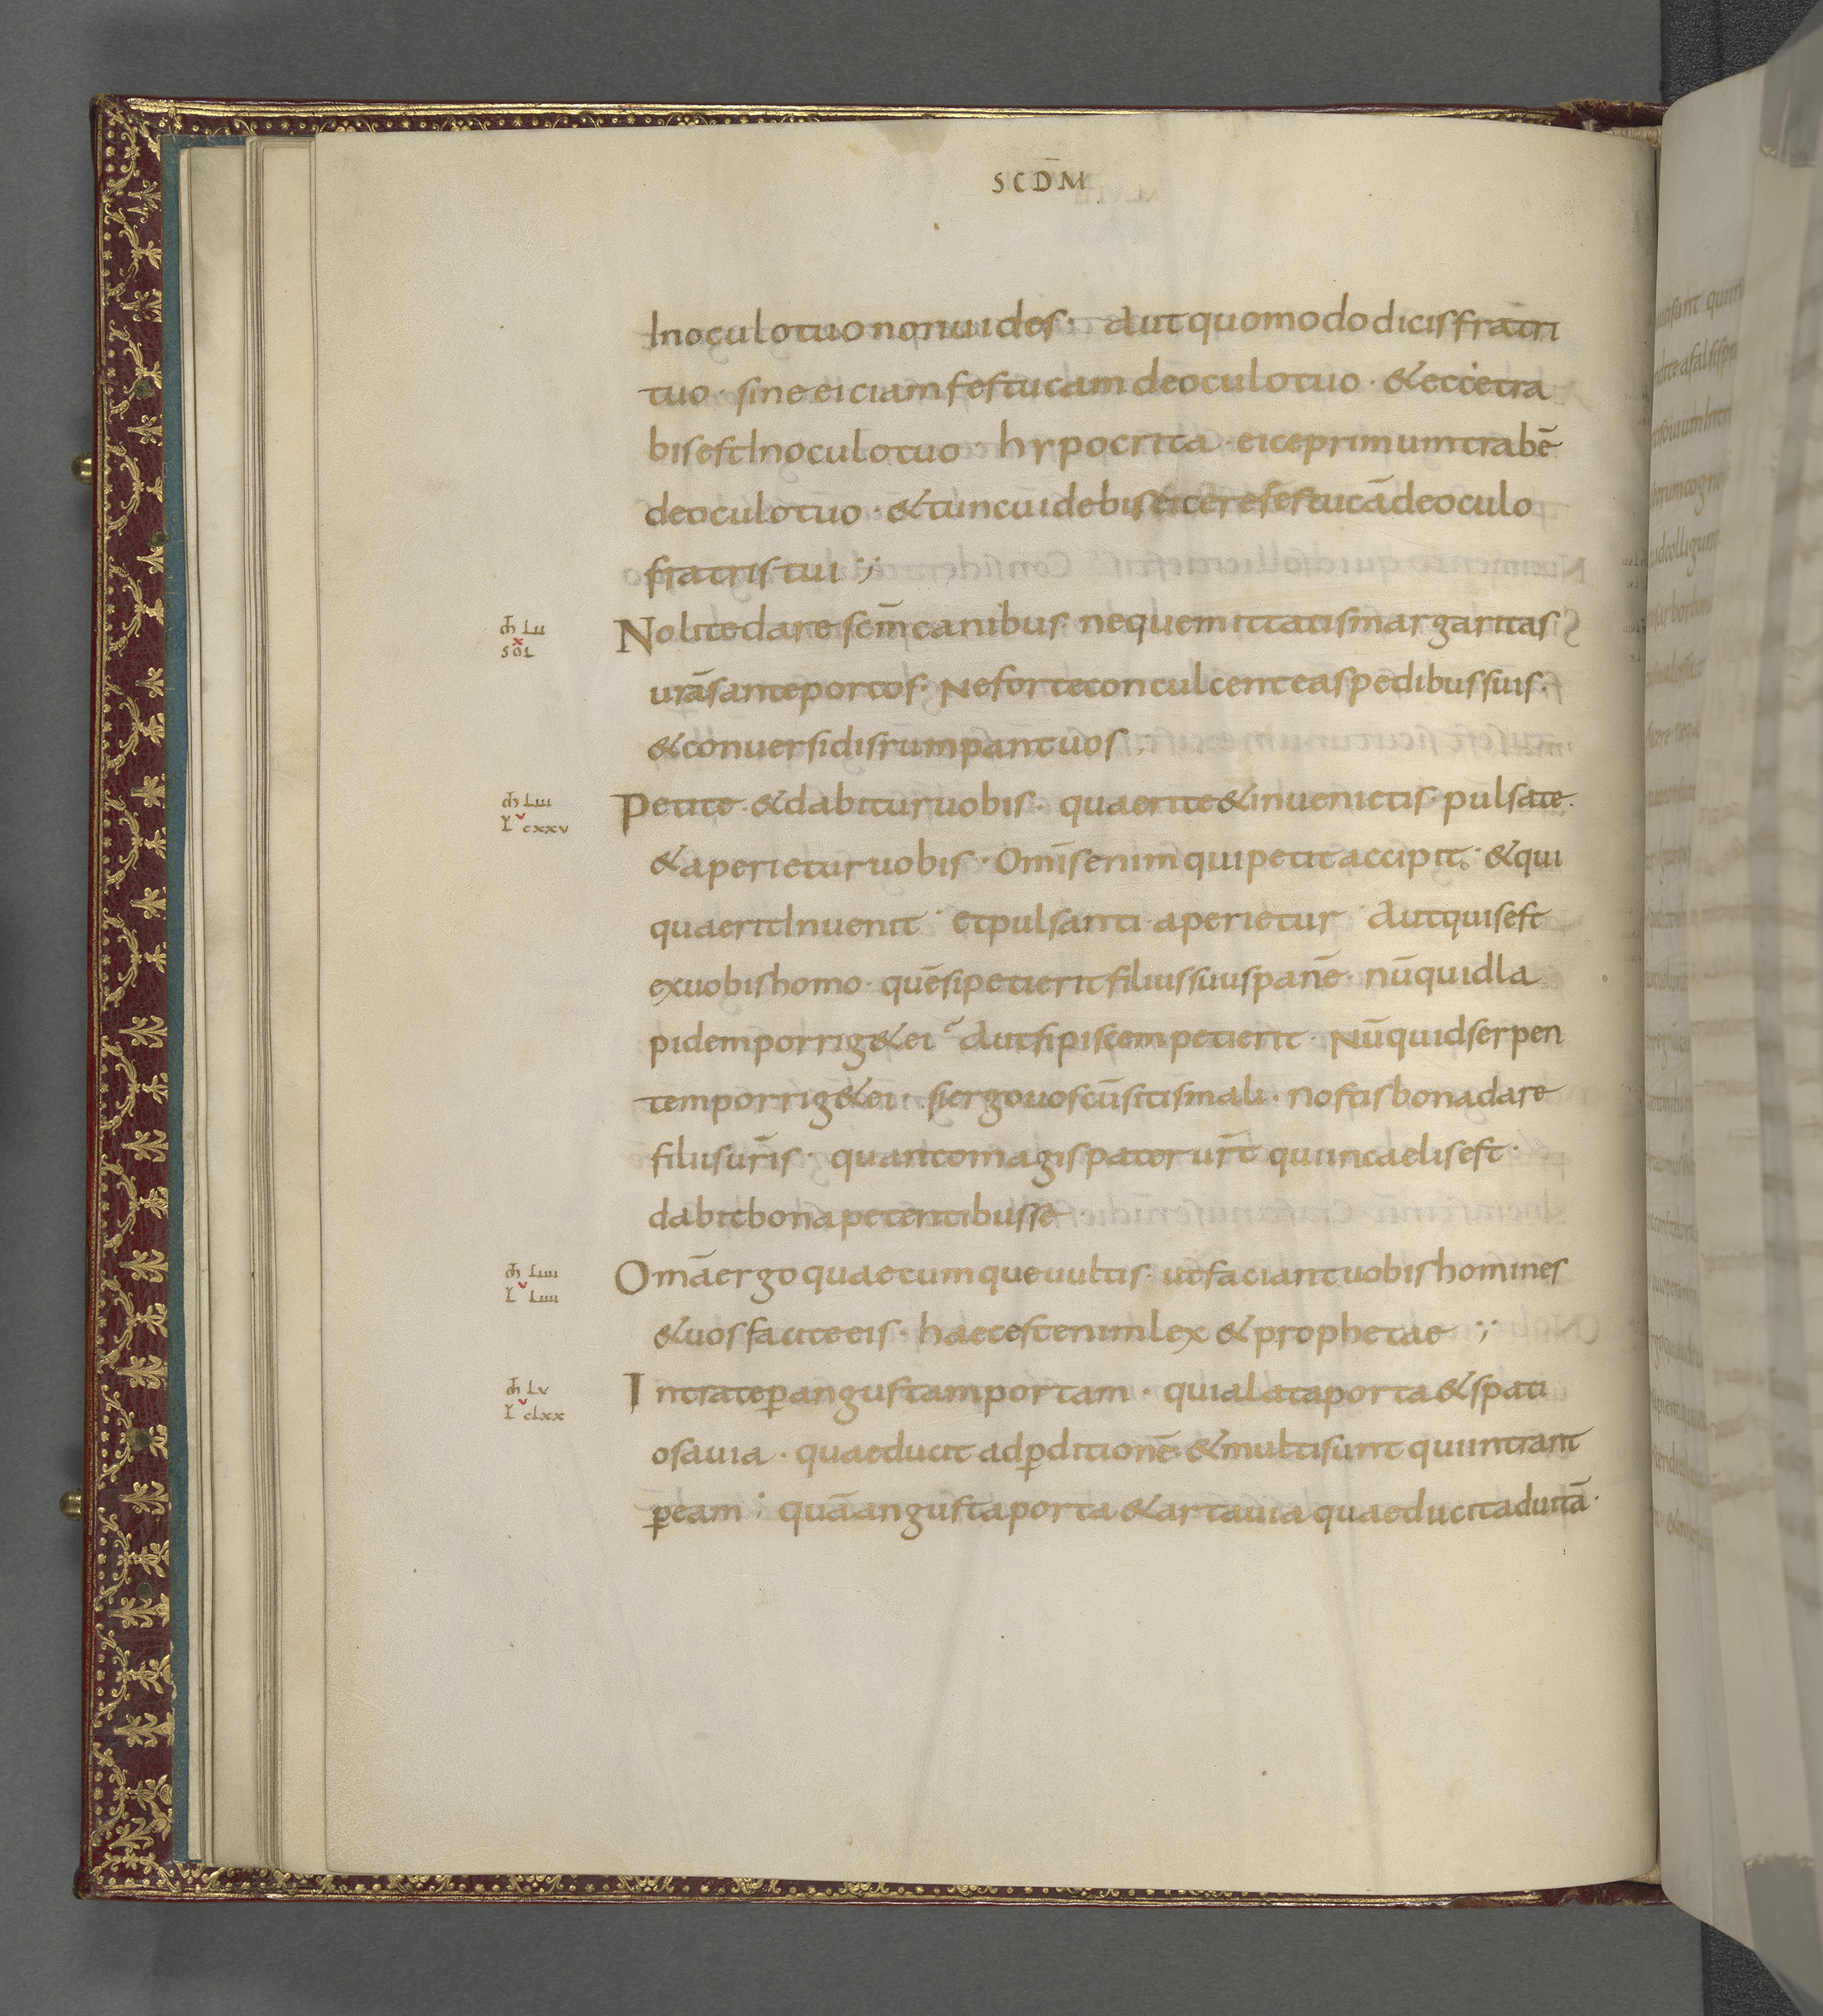 SCD̄M
Inoculotuononuides· Autquomododicisfratri
tuo· sineeiciamfestucamdeoculotuo· &eccetra
bisestInoculotuo· hypocrita· eiceprimumtrabē
deoculotuo· &tuncuidebiseicerefestucādeoculo
fratristui ·;
m̄ Lii
x
sol
Nolitedare scm̄canibus· nequemittatismargaritas
urāsanteporcos· Neforteconculcenteaspedibussuis·
&conuersidisrumpantuos·
m̄ Liii
L v cxxv
Petite· &dabituruobis· quaerite&inuenietis· pulsate·
&aperieturuobis· Omīsenimquipetitaccipit· &qui
quaeritInuenit· etpulsanti·aperietur· Autquisest
exuobishomo· quēsipetieritfiliussuuspanē· nūquidla
pidemporrig&ei· Autsipiscempetierit· Nūquidserpen
temporrig&ei· siergouoscūsitismali· nostisbonadare
filiisur̄is· quantomagispaterur̄t quiincaelisest·
dabitbonapetentibusse
m̄ Liiii
L v Liiii
Omāergoquaecumqueuultis· utfaciantuobishomines
&uosfaciteeis· haecestenimlex &prophetae ·;
m̄ Lv
L v cLxx
Intrateꝑangustamportam· quialataporta&spati
osauia· quaeducit adꝑditionē &multisunt quiintrant
ꝑeam· quāangustaporta &artauia quaeducitaduitā·